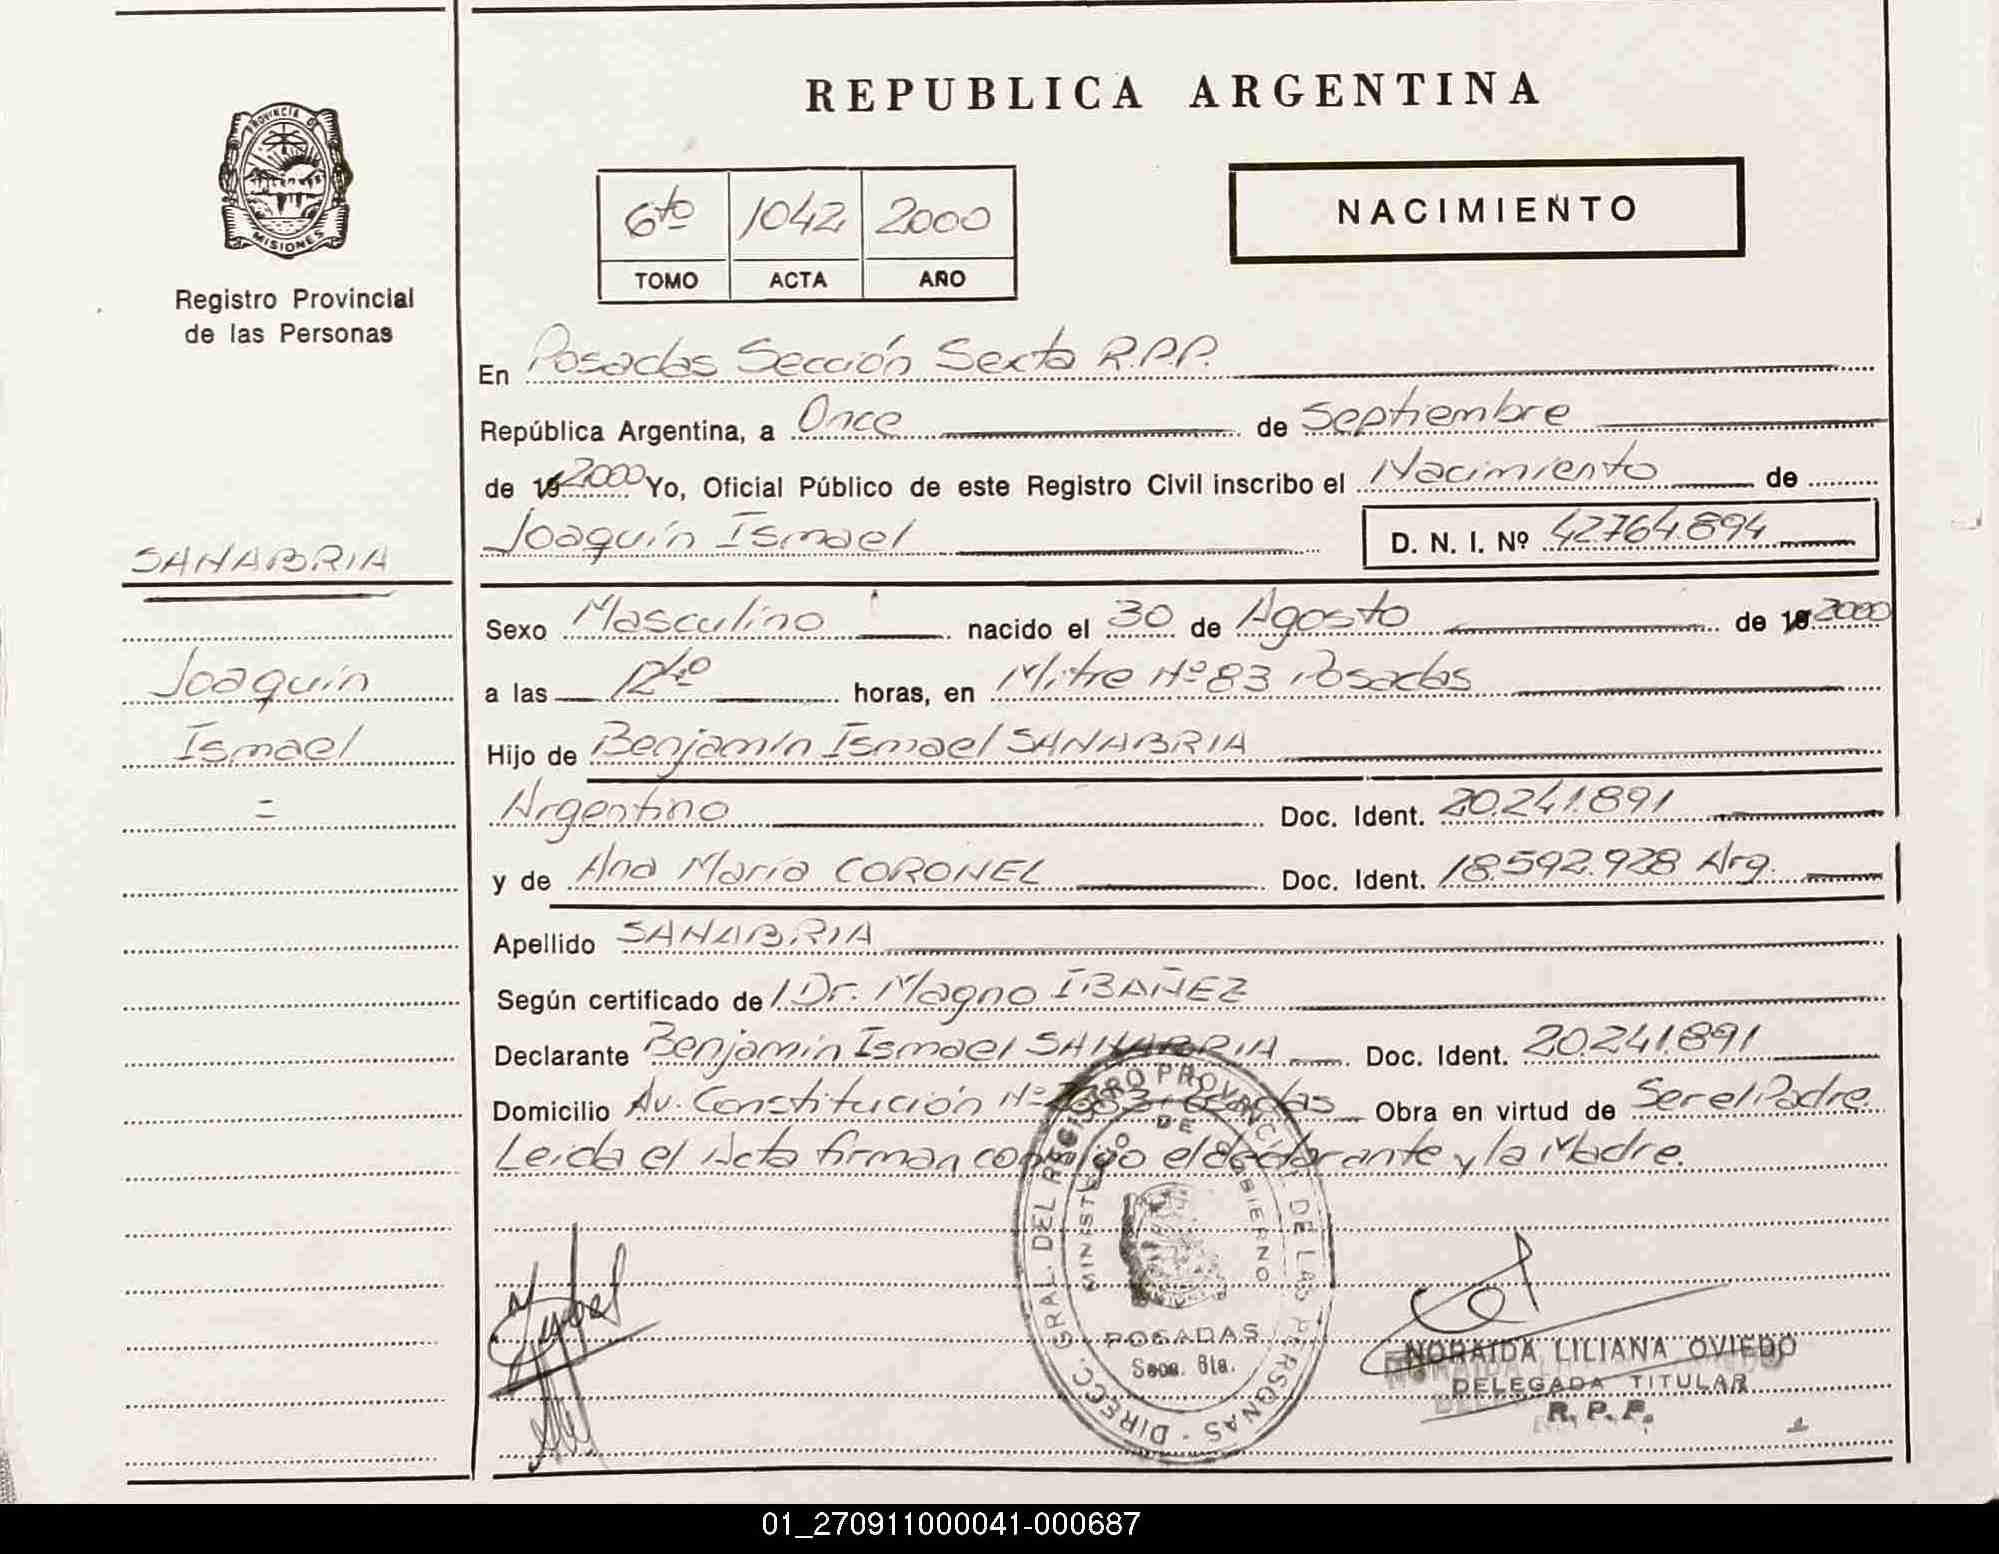 REPUBLICA ARGENTINA
PROVINCIA D
MISIONES
Registro Provincial
de las Personas
6to 1042 2000
TOMO ACTA AÑO
NACIMIENTO
En Posadas Sección Sexta R.P.P.
República Argentina, a Once de Septiembre
de 192000 Yo, Oficial Público de este Registro Civil inscribo el Nacimiento de
Joaquín Ismael D. N. I. Nº 42764.894
SANABRIA
Joaquín
Ismael
=
Sexo Masculino nacido el 30 de Agosto de 192000
a las horas, en Mitre Nº 83 Posadas
Hijo de Benjamín Ismael SANABRIA
Argentino Doc. Ident. 20.241.891
y de Ana María CORONEL Doc. Ident. 18.592.928 Arg.
Apellido SANABRIA
Según certificado de l Dr. Magno IBAÑEZ
Declarante Benjamín Ismael SANABRIA Doc. Ident. 20.241.891
Domicilio Av. Constitución Nº Posadas Obra en virtud de Ser el Padre.
Leida el Acta firman conmigo el declarante y la Madre.
DIRECC. GRAL. DEL REGISTRO PROVINCIAL DE LAS PERSONAS
MINISTERIO DE GOBIERNO
POSADAS
Secc. 6ta.
NORAIDA LILIANA OVIEDO
DELEGADA TITULAR
R. P. P.
01_270911000041-000687